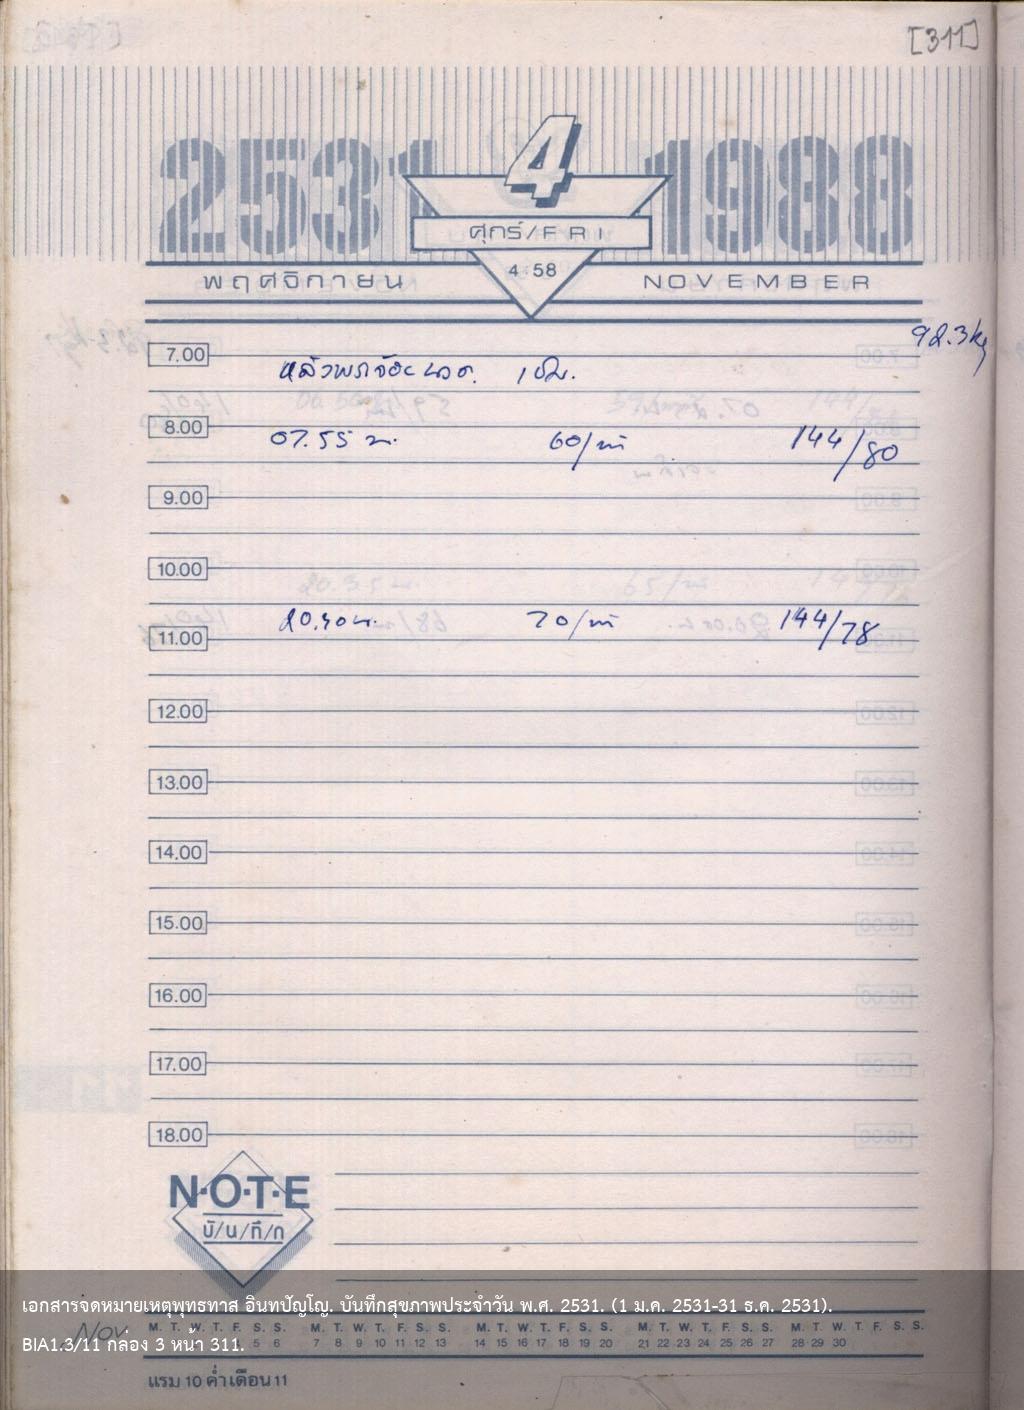 [311]
2531 4 1988
ศุกร์/FRI
4-58
พฤศจิกายน NOVEMBER
92.3kg
7.00
1 ชม.
8.00
07.55 น. 60/นาที 144/80
9.00
10.00
20.40 น. 70/นาที 144/78
11.00
12.00
13.00
14.00
15.00
16.00
17.00
18.00
N·O·T·E
บั/น/ทึ/ก
เอกสารจดหมายเหตุพุทธทาส อินทปัญโญ. บันทึกสุขภาพประจำวัน พ.ศ. 2531. (1 ม.ค. 2531-31 ธ.ค. 2531).
Nov. M. T. W. T. F. S. S. M. T. W. T. F. S. S. M. T. W. T. F. S. S. M. T. W. T. F. S. S. M. T. W. T. F. S. S.
5 6 7 8 9 10 11 12 13 14 15 16 17 18 19 20 21 22 23 24 25 26 27 28 29 30
BIA1.3/11 กล่อง 3 หน้า 311.
แรม 10 ค่ำ เดือน 11